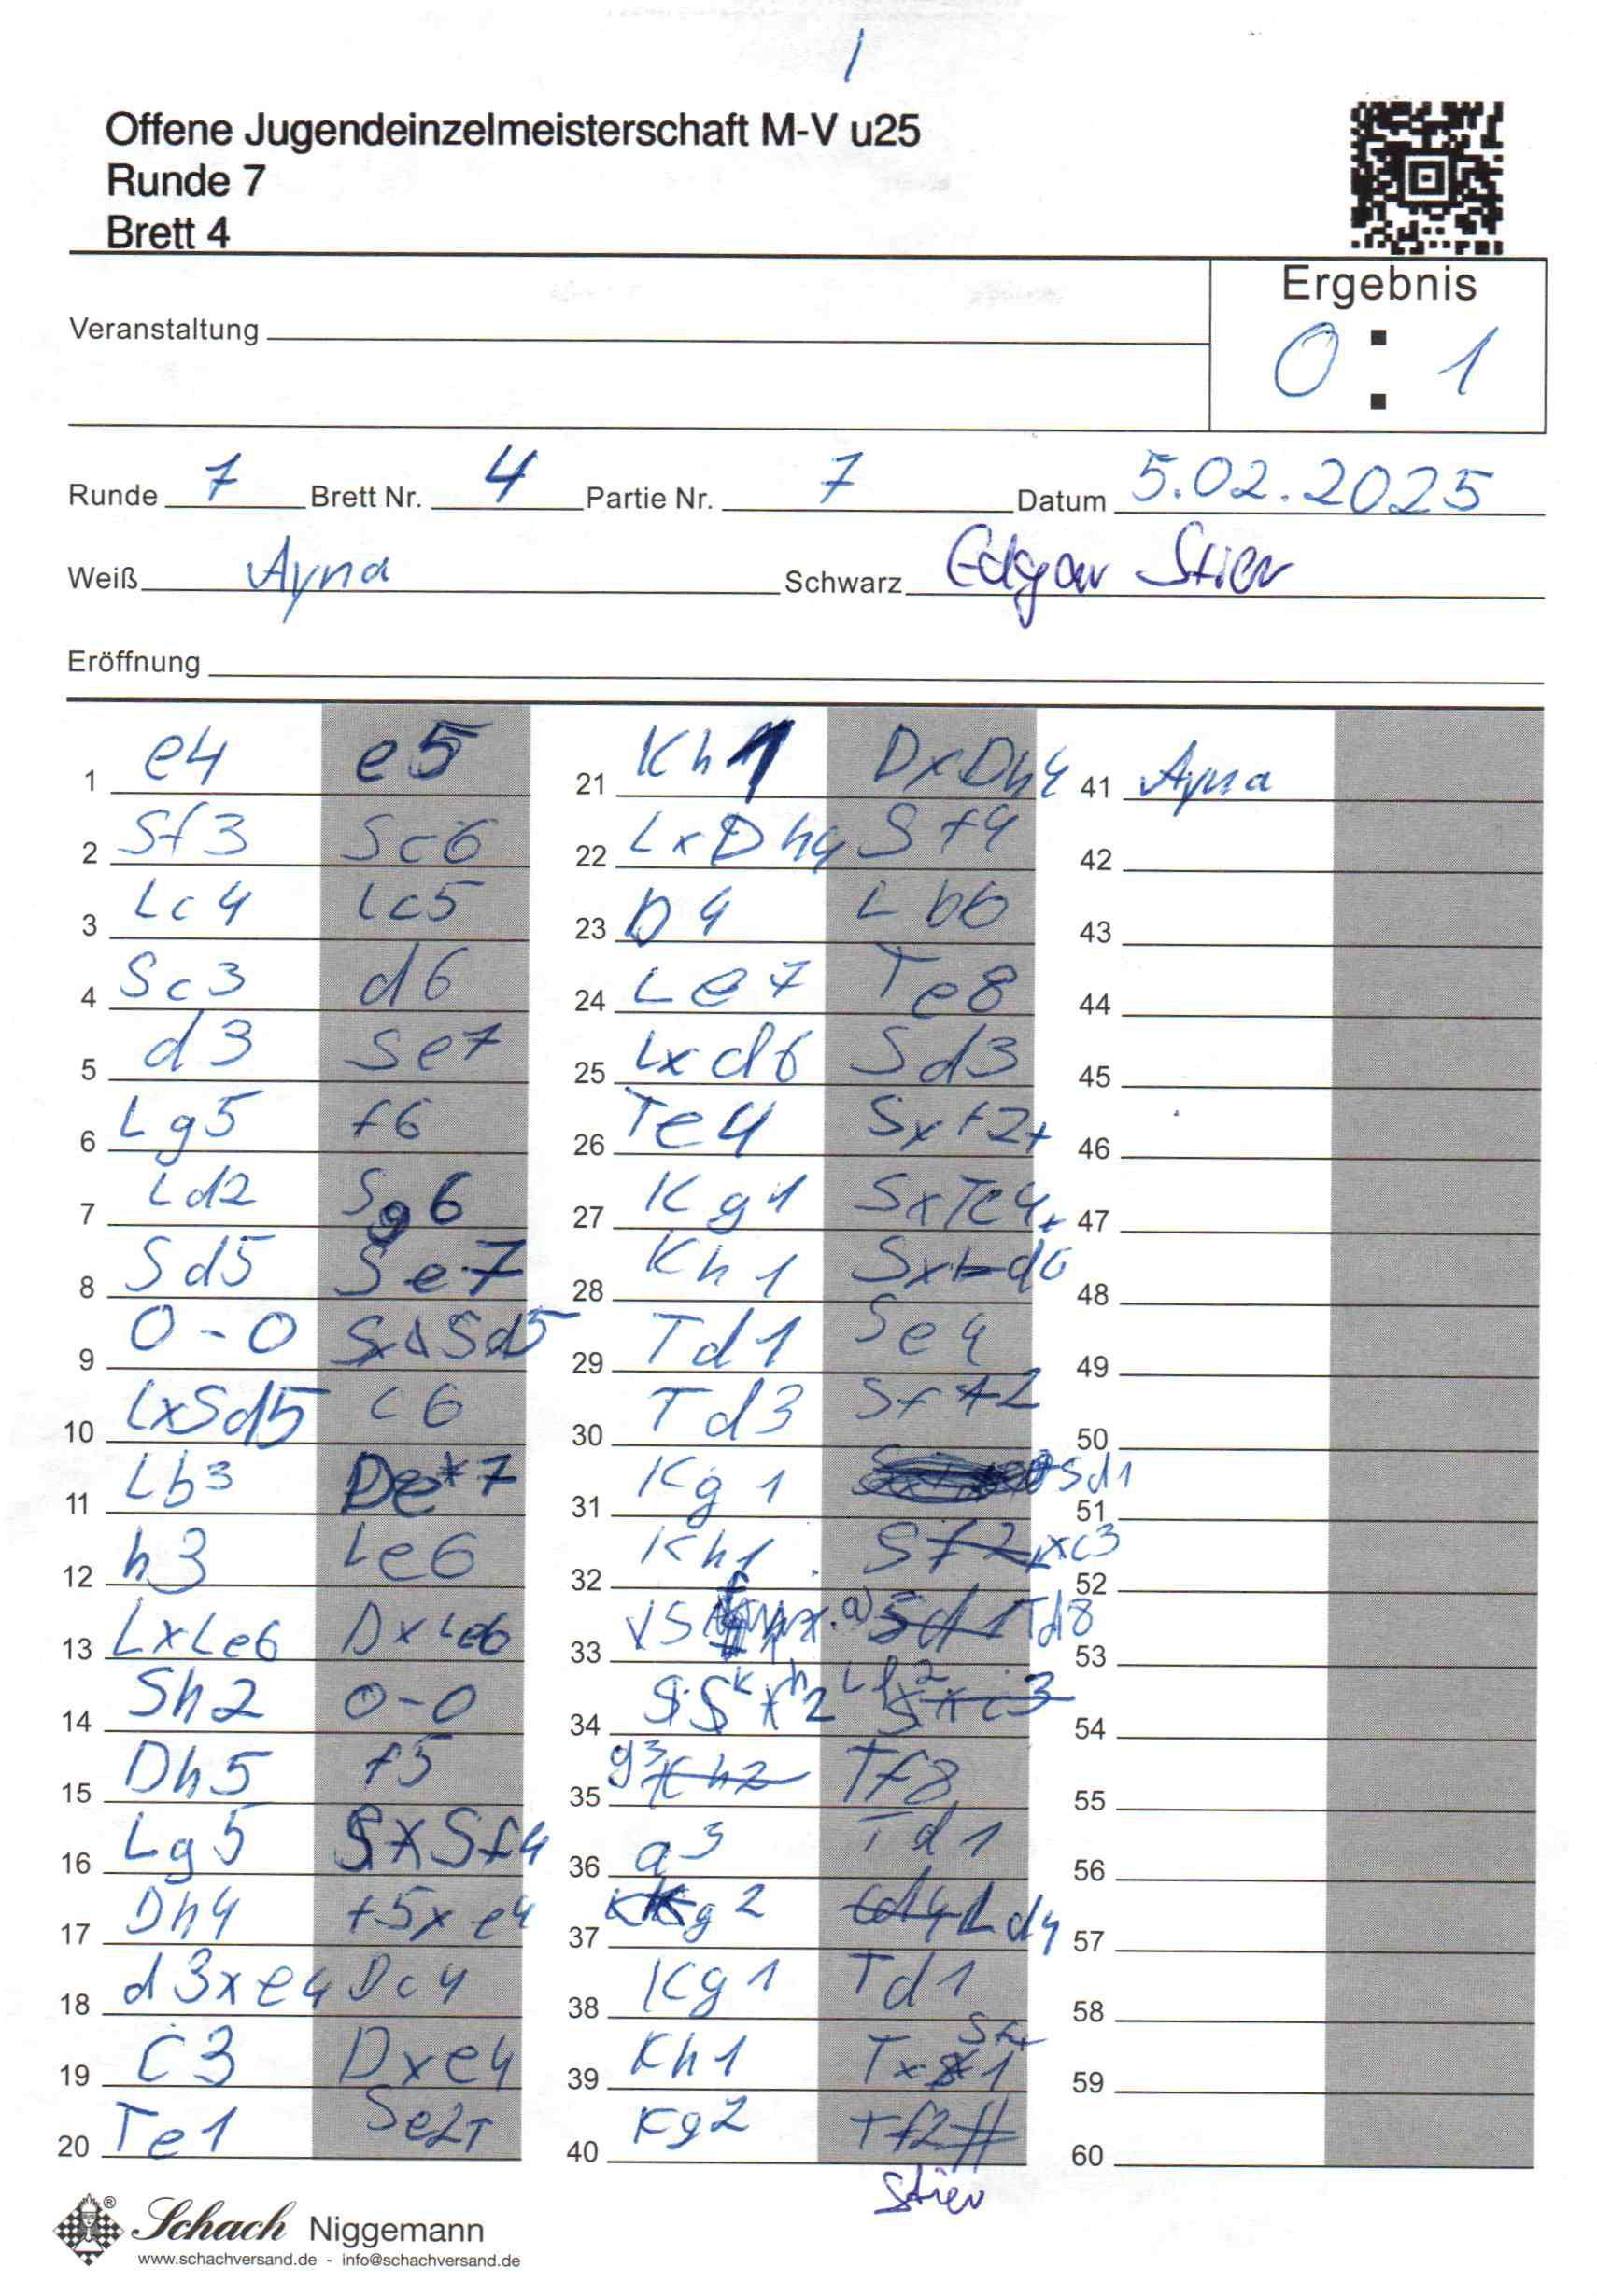 1
Offene Jugendeinzelmeisterschaft M-V u25
Runde 7
Brett 4
Ergebnis
0 : 1
Veranstaltung
Runde 7 Brett Nr. 4 Partie Nr. 7 Datum 5.02.2025
Weiß Ayna Schwarz Edgar Stier
Eröffnung
1 e4 e5
2 Sf3 Sc6
3 Lc4 Lc5
4 Sc3 d6
5 d3 Se7
6 Lg5 f6
7 Ld2 Sg6
8 Sd5 Se7
9 0-0 SxSd5
10 LxSd5 c6
11 Lb3 De7
12 h3 Le6
13 LxLe6 DxLe6
14 Sh2 0-0
15 Dh5 f5
16 Lg5 SxSf4
17 Dh4 f5xe4
18 d3xe4 Dc4
19 c3 Dxe4
20 Te1 Se2+
21 Kh1 DxDh4
22 LxDh4 Sf4
23 b4 Lb6
24 Le7 Te8
25 Lxd6 Sd3
26 Te4 Sxf2+
27 Kg1 SxTe4+
28 Kh1 SxLd6
29 Td1 Se4
30 Td3 Sf2
31 Kg1 Sd1
32 Kh1 Sf2 xc3
33 Sd1 Td8
34 Sxc3
35 g3 Kh2 Tf8
36 a3 Td1
37 Kg2 Ld4
38 Kg1 Td1
39 Kh1
40 Kg2 Tf2#
Stier
41 Ayna
42
43
44
45
46
47
48
49
50
51
52
53
54
55
56
57
58
59
60
Schach Niggemann
www.schachversand.de - info@schachversand.de